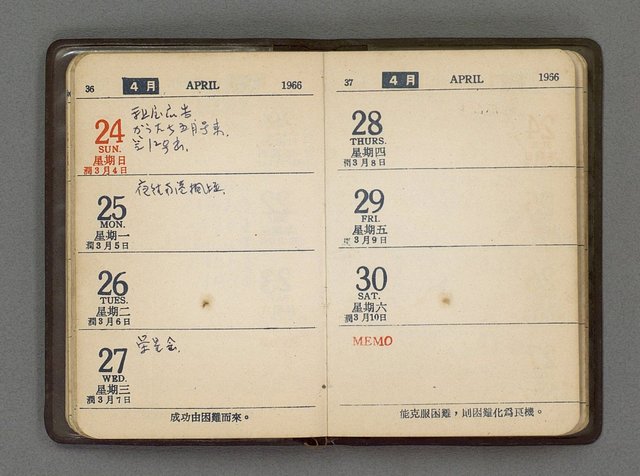 36 4月 APRIL 1966
24
SUN.
星期日
潤3月4日
25
MON.
星期一
潤3月5日
26
TUES.
星期二
潤3月6日
27
WED.
星期三
潤3月7日
成功由困難而來。
37 4月 APRIL 1966
28
THURS.
星期四
潤3月8日
29
FRI.
星期五
潤3月9日
30
SAT.
星期六
潤3月10日
MEMO
能克服困難，則困難化為良機。